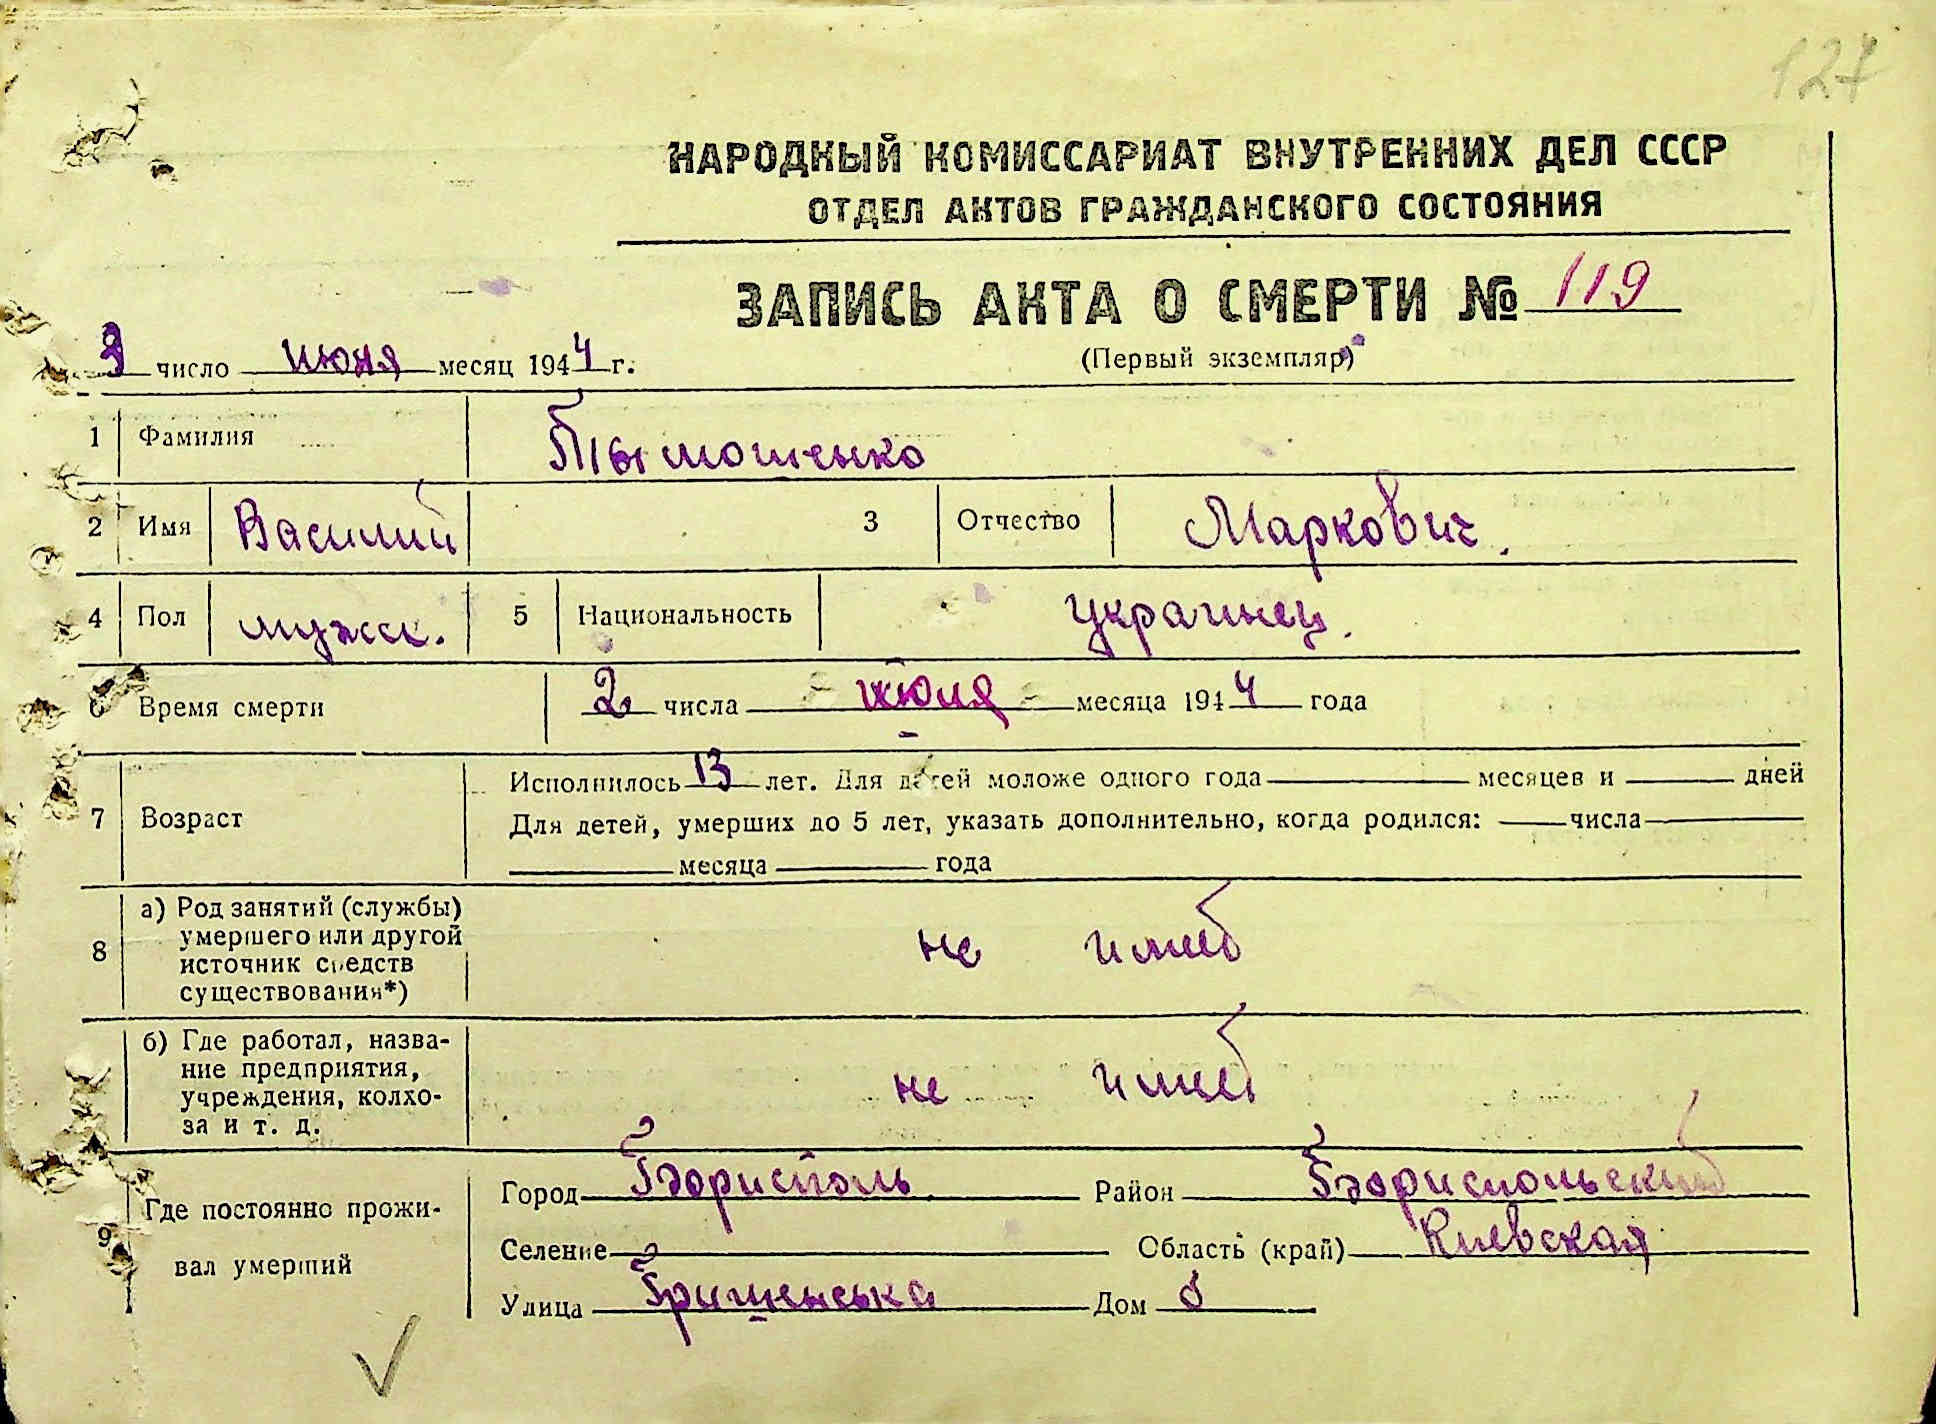 127
НАРОДНЫЙ КОМИССАРИАТ ВНУТРЕННИХ ДЕЛ СССР
ОТДЕЛ АКТОВ ГРАЖДАНСКОГО СОСТОЯНИЯ
ЗАПИСЬ АКТА О СМЕРТИ № 119
3 число июня месяц 1944 г.
(Первый экземпляр)
1 Фамилия Тымошенко
2 Имя Василий 3 Отчество Маркович.
4 Пол мужск. 5 Национальность украинец.
6 Время смерти 2 числа июня месяца 1944 года
7 Возраст Исполнилось 13 лет. Для детей моложе одного года месяцев и дней
Для детей, умерших до 5 лет, указать дополнительно, когда родился: числа
месяца года
8 а) Род занятий (службы)
умершего или другой
источник средств
существования*)
не имеб
б) Где работал, назва-
ние предприятия,
учреждения, колхо-
за и т. д.
не имеб
9 Где постоянно прожи-
вал умерший
Город Борисполь Район Бориспольский
Селение Область (край) Киевская
Улица Грищенська Дом